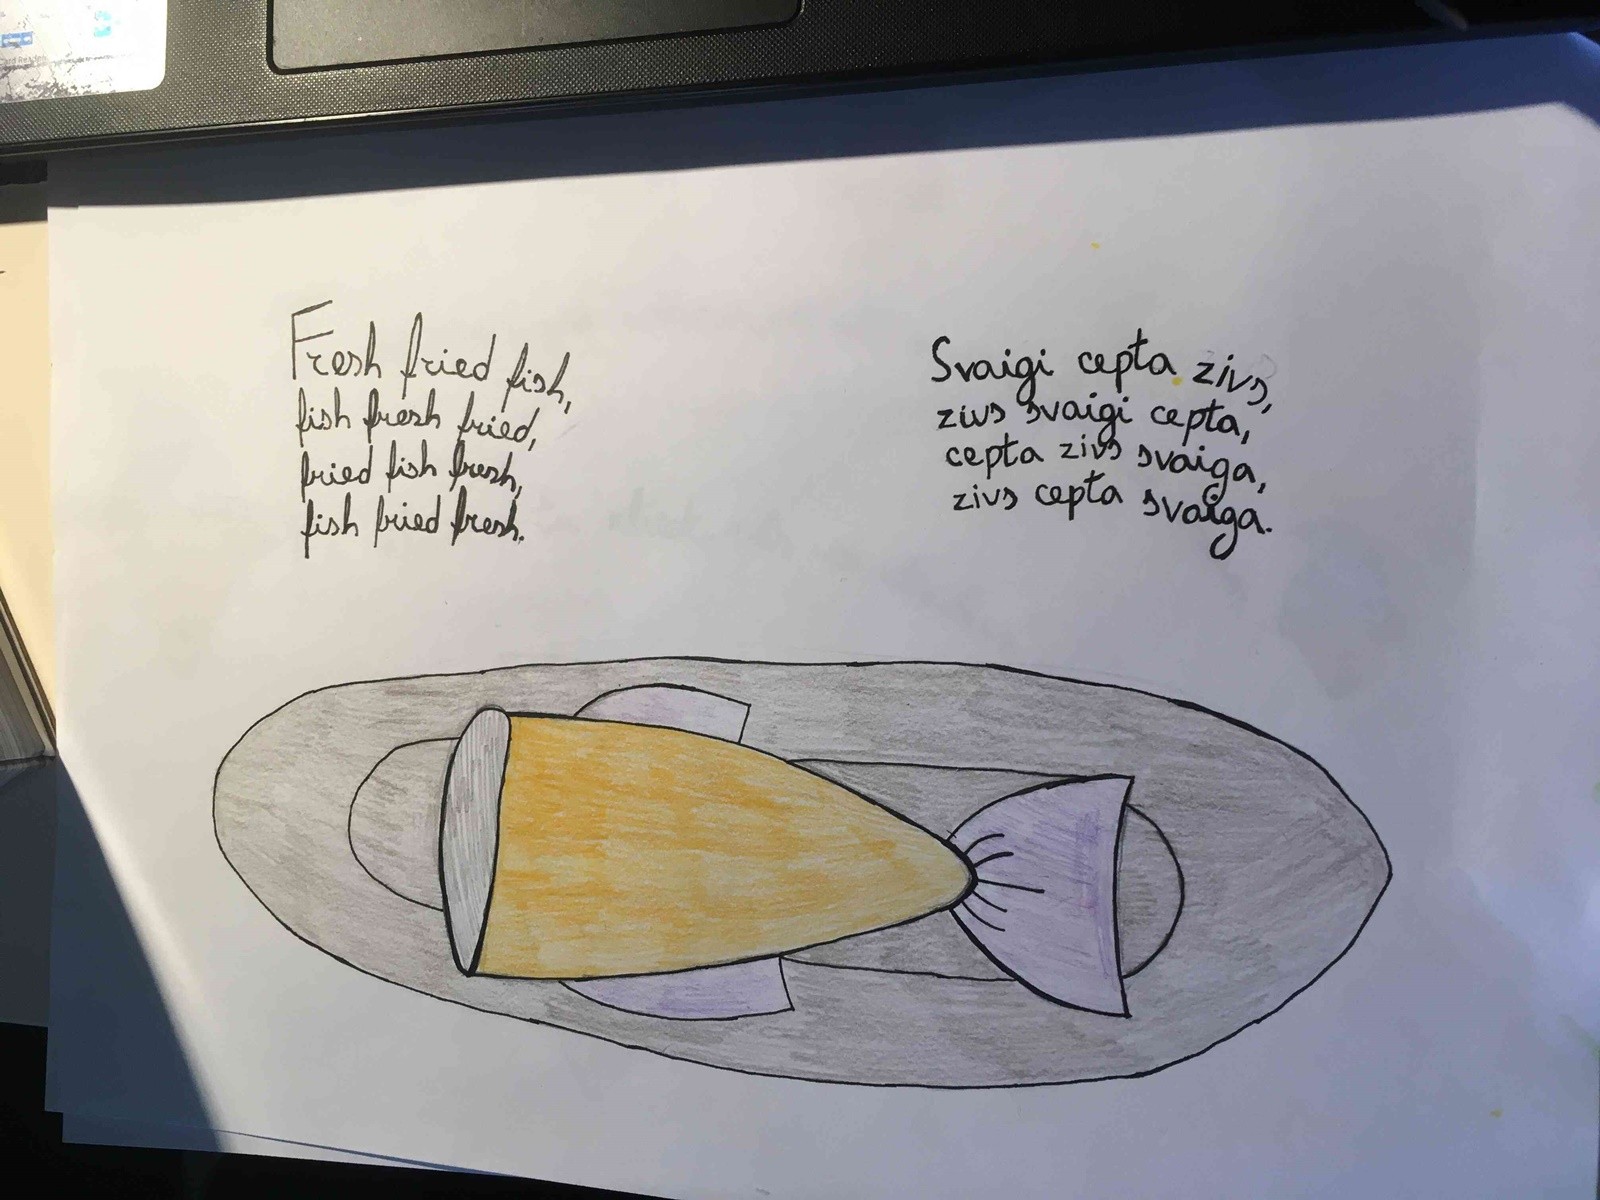 Fresh fried fish,
fish fresh fried,
fried fish fresh,
fish fried fresh.
Svaigi cepta zivs,
zivs svaigi cepta,
cepta zivs svaiga,
zivs cepta svaiga.